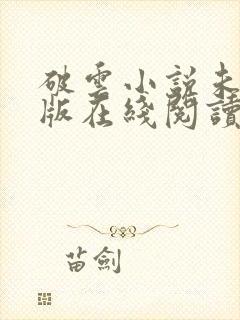 破雲小說未
版在綫閱讀
苗劍